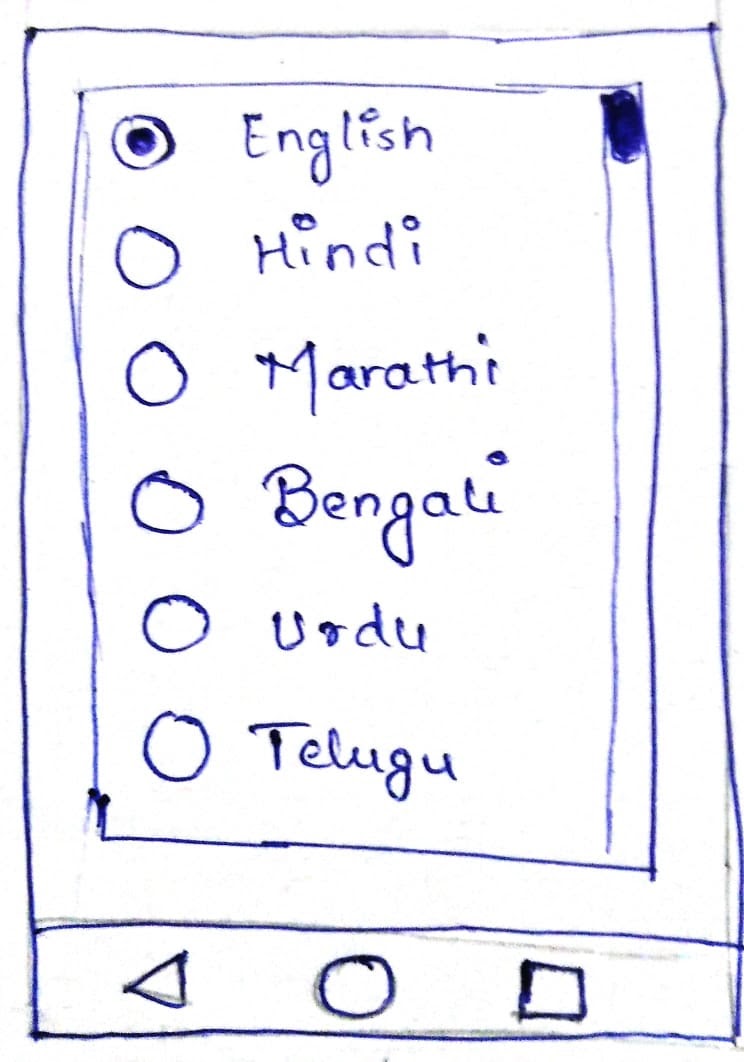 English
Hindi
Marathi
Bengali
Urdu
Telugu